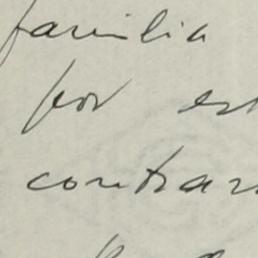 familia
por es
contrar